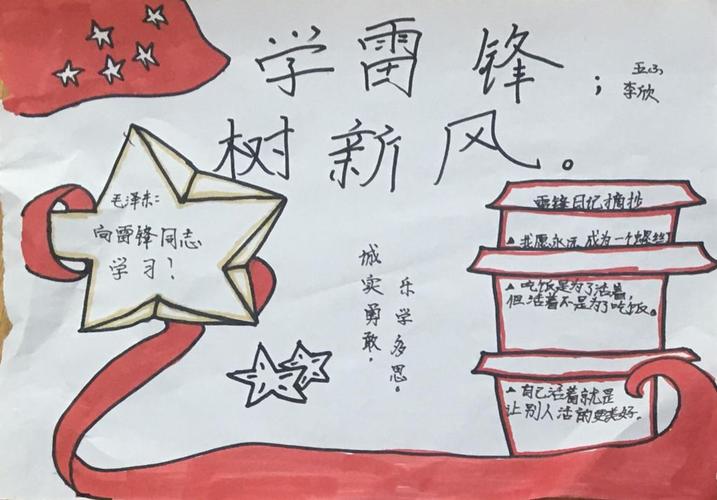 学雷锋；
树新风。
五(3)
李欣
毛泽东：
向雷锋同志
学习！
城实勇敢。
乐学多思。
雷锋日记摘抄
▲我愿永远成为一个螺丝
▲吃饭是为了活着，
但活着不是为了吃饭。
▲自己活着就是
让别人活的更美好。